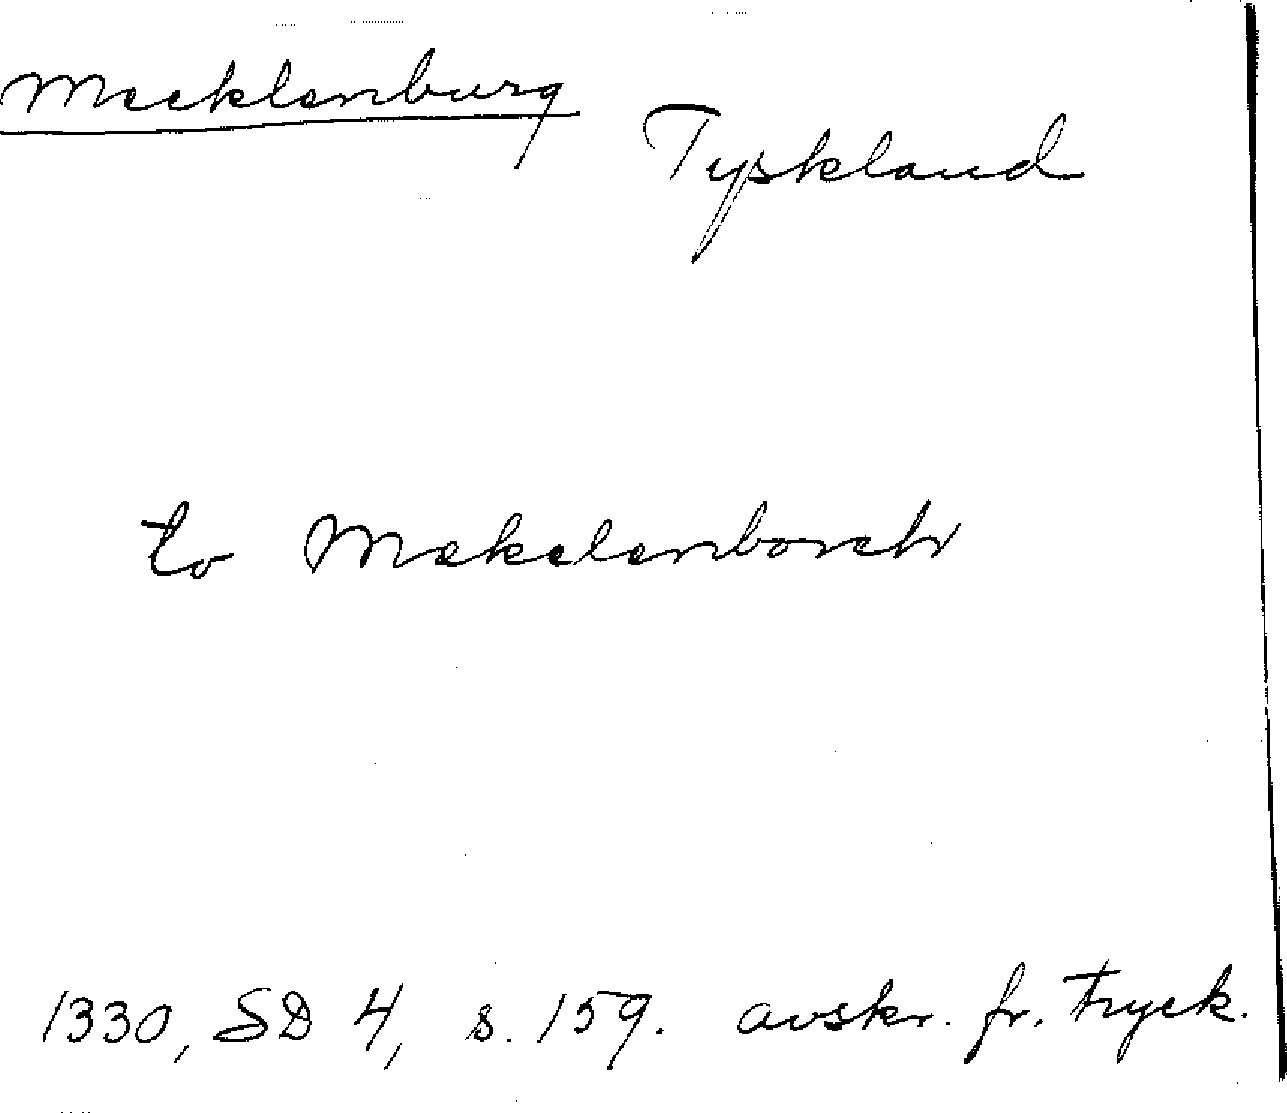 Mecklenburg
Tyskland
to Mekelenborch
1330, SD 4, s. 159. avskr. fr. tryck.